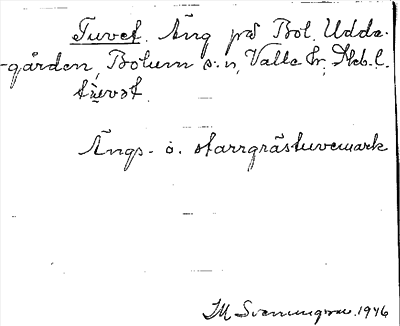 Tuvet. Äng på Bol. Udde-
gården, Bolum s:n, Valle hr, Skb. l.
Ängs- o. starrgrästuvemark
1946